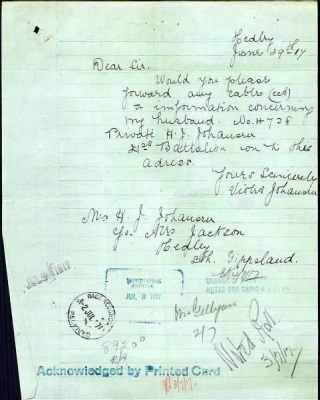 Hedley
June 29th 17
Dear Sir.
Would you please
forward any cables (ect)
or information concerning
my husband. No. 4738
Private H. J. Johansen
21st Battalion on to this
adress.
Yours Sincerely
Violet Johansen
Mrs H. J. Johansen
C/o. Mrs Jackson
Hedley
Sth. Gippsland.
JUL 3 1917
2 JUL 17
8920
2/7
Noted
3/7/17
Acknowledged by Printed Card